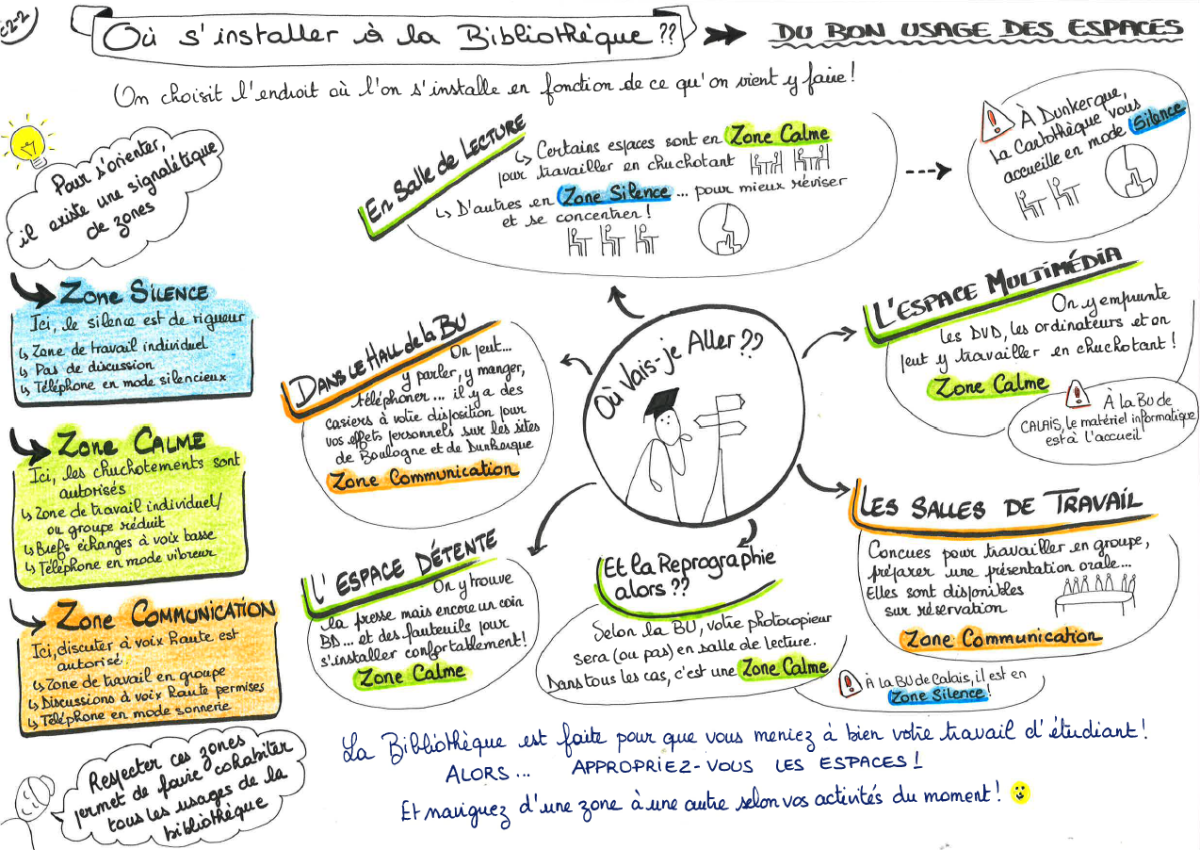 Où s'installer à la Bibliothèque ??
DU BON USAGE DES ESPACES
On choisit l'endroit où l'on s'installe en fonction de ce qu'on vient y faire !
Pour s'orienter,
il existe une signalétique
de zones
Zone SILENCE
Ici, le silence est de rigueur
↳ Zone de travail individuel
↳ Pas de discussion
↳ Téléphone en mode silencieux
Zone CALME
Ici, les chuchotements sont
autorisés
↳ Zone de travail individuel/
ou groupe réduit
↳ Brefs échanges à voix basse
↳ Téléphone en mode vibreur
Zone COMMUNICATION
Ici, discuter à voix haute est
autorisé.
↳ Zone de travail en groupe
↳ Discussions à voix haute permises
↳ Téléphone en mode sonnerie
Respecter ces zones
permet de faire cohabiter
tous les usages de la
bibliothèque
En Salle de LECTURE
↳ Certains espaces sont en Zone Calme
pour travailler en chuchotant
↳ D'autres en Zone Silence ... pour mieux réviser
et se concentrer !
À Dunkerque,
la Cartothèque vous
accueille en mode Silence
DANS LE HALL de la BU
On peut...
y parler, y manger,
téléphoner ... il y a des
casiers à votre disposition pour
vos effets personnels sur les sites
de Boulogne et de Dunkerque
Zone Communication
Où Vais-je Aller ??
L'ESPACE MULTIMÉDIA
On y emprunte
les DVD, les ordinateurs et on
peut y travailler en chuchotant !
Zone Calme
À la BU de
CALAIS, le matériel informatique
est à l'accueil
L'ESPACE DÉTENTE
On y trouve
la presse mais encore un coin
BD... et des fauteuils pour
s'installer confortablement !
Zone Calme
Et la Reprographie
alors ??
Selon la BU, votre photocopieur
sera (ou pas) en salle de lecture.
Dans tous les cas, c'est une Zone Calme
À la BU de Calais, il est en
Zone Silence !
LES SALLES DE TRAVAIL
Concues pour travailler en groupe,
préparer une présentation orale...
Elles sont disponibles
sur réservation
Zone Communication
La Bibliothèque est faite pour que vous meniez à bien votre travail d'étudiant !
ALORS ... APPROPRIEZ-VOUS LES ESPACES !
Et naviguez d'une zone à une autre selon vos activités du moment !